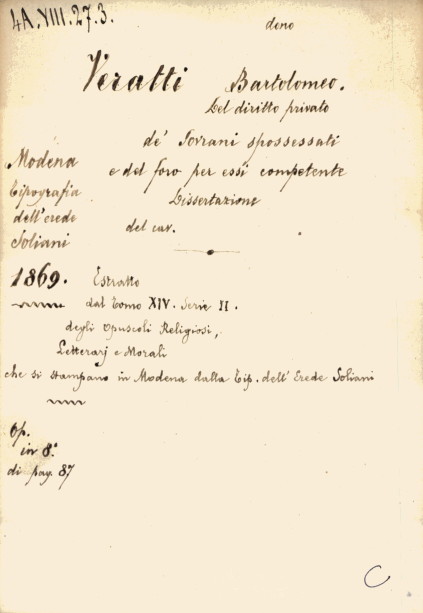 4A.VIII.27.3.
dono
Veratti Bartolomeo.
Del diritto privato
de' Sovrani spossessati
e del foro per essi competente
Dissertazione
del cav.
Modena
Tipografia
dell'erede
Soliani
1869. Estratto
dal Tomo XIV. Serie II.
degli Opuscoli Religiosi,
Letterarj e Morali
che si stampano in Modena dalla Tip. dell'Erede Soliani
Op.
in 8.°
di pag. 87
C